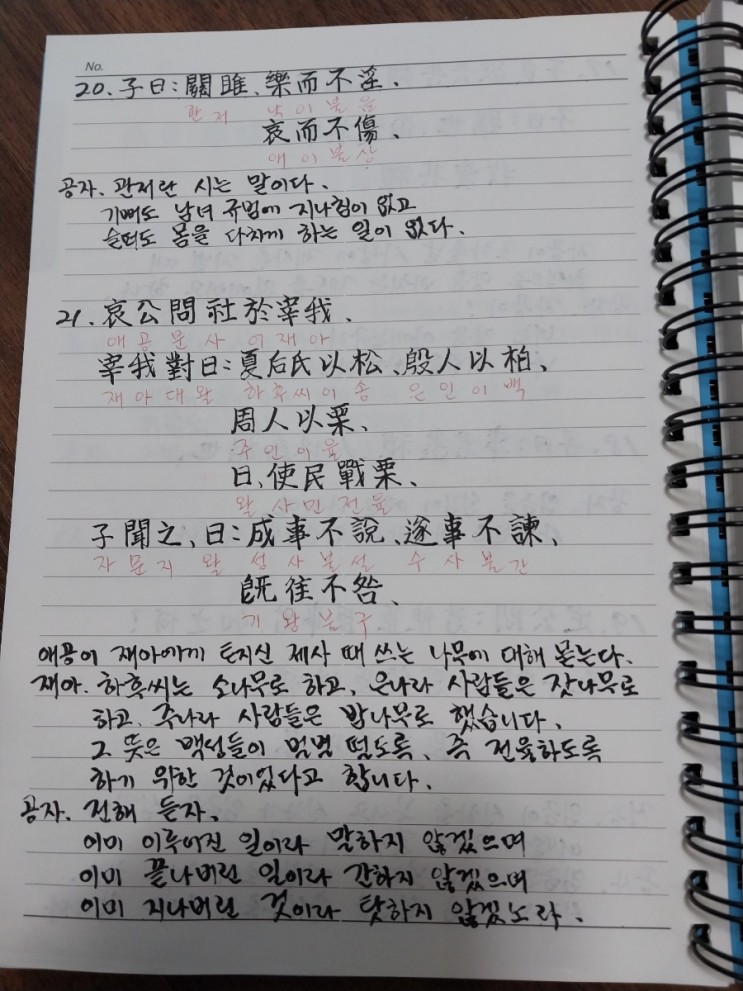 No.
20. 子曰：關雎、樂而不淫、
관저 낙이불음
哀而不傷、
애이불상
공자. 관저란 시는 말이다.
기뻐도 남녀 규범에 지나침이 없고
슬퍼도 몸을 다치게 하는 일이 없다.
21. 哀公問社於宰我、
애공문사어재아
宰我對曰：夏后氏以松、殷人以柏、
재아대왈 하후씨이송 은인이백
周人以栗、
주인이율
曰、使民戰栗、
왈 사민전율
子聞之、曰：成事不說、遂事不諫、
자문지 왈 성사불설 수사불간
旣往不咎、
기왕불구
애공이 재아에게 토지신 제사 때 쓰는 나무에 대해 묻는다.
재아. 하후씨는 소나무로 하고, 은나라 사람들은 잣나무로
하고, 주나라 사람들은 밤나무로 했습니다.
그 뜻은 백성들이 벌벌 떨도록, 즉 전율하도록
하기 위한 것이었다고 합니다.
공자. 전해 듣자,
이미 이루어진 일이라 말하지 않겠으며
이미 끝나버린 일이라 간하지 않겠으며
이미 지나버린 것이라 탓하지 않겠노라.